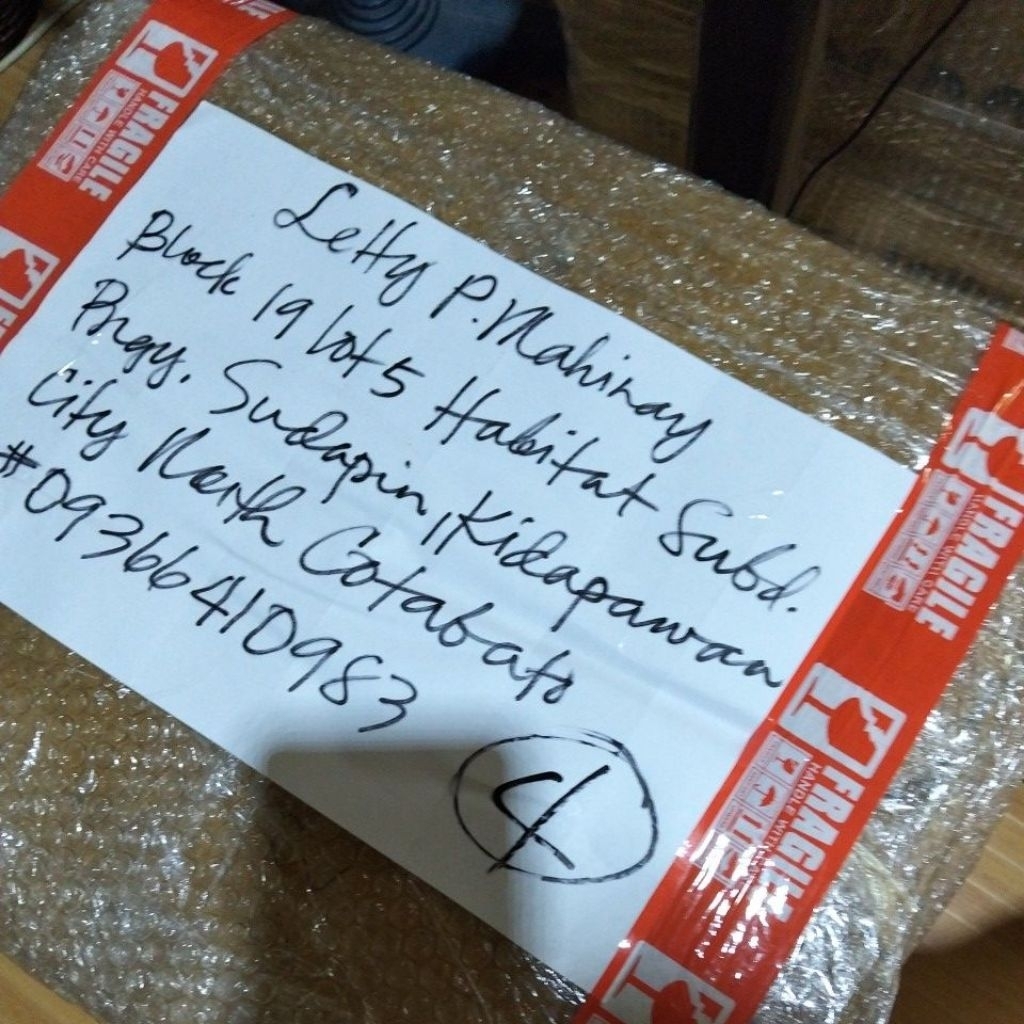 Letty P. Mahinay
Block 19 lot 5 Habitat Subd.
Brgy. Sudapin, Kidapawan
City North Cotabato
#09366410983
4
FRAGILE
HANDLE WITH CARE
FRAGILE
HANDLE WITH CARE
FRAGILE
HANDLE WITH